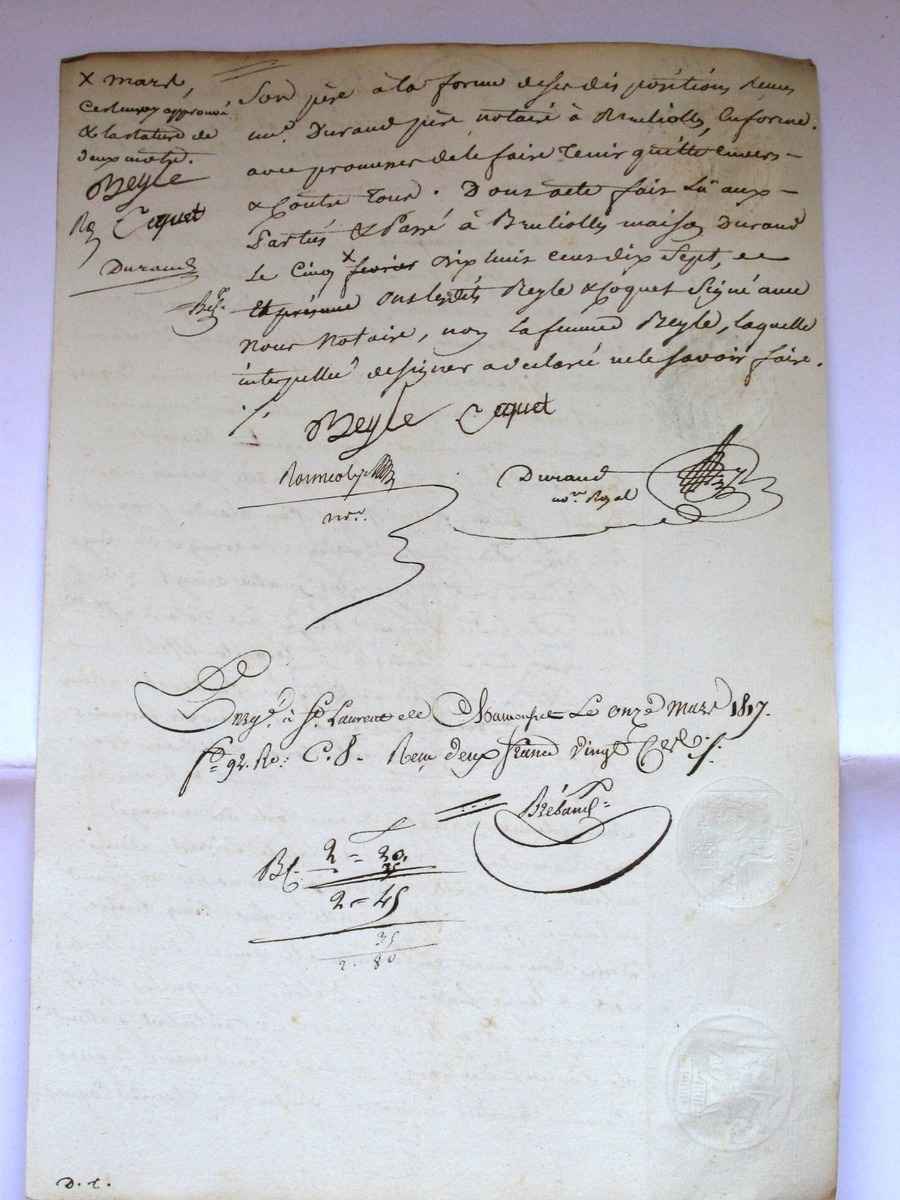 x mars,
cet renvoy approuvé
& la rature de
deux mots.
Beyle
Coquet
Durand
son père à la forme de ses dis positions reçues
me. Durand père notaire à Brulliolles, la forme.
avec promesse de le faire tenir quitte envers
& contre tous. Dont acte fait lû aux
Parties & Passé à Brulliolles maison Durand
Le Cinq x fevrier dix huit cent dix Sept, et
ont lesdits Beyle & Coquet signé avec
Nous Notaire, non la femme Beyle, laquelle
interpellée de signer a declaré ne le savoir faire.
Beyle Coquet
Durand
nore. Royal
nre.
Enregé. à St. Laurent de Chamousset Le onze Mars 1817.
fo. 92. Ro: C. 8. Reçu deux francs vingt Cent. s.
2 = 20.
25
2 = 45
35
2. 80
D. C.